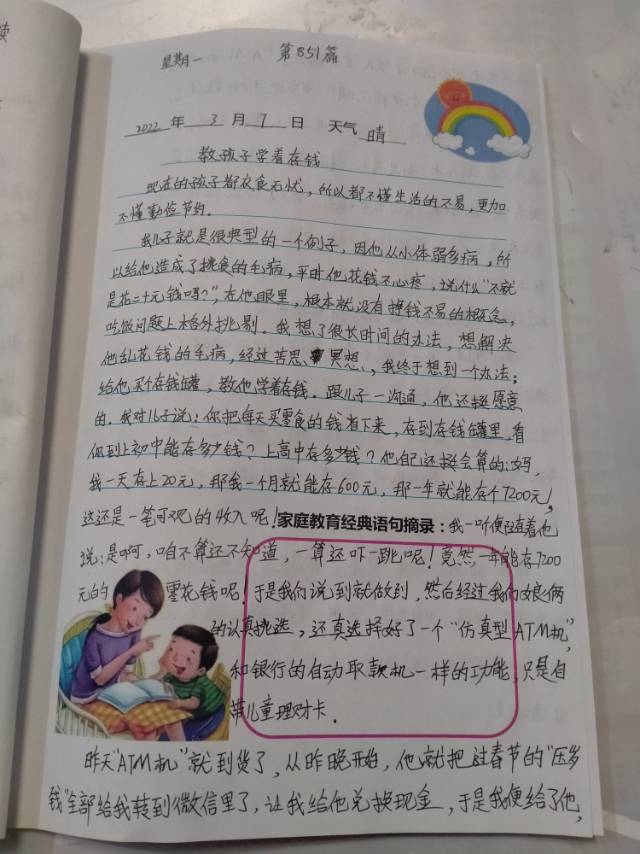 星期一 第851篇
2022年3月7日 天气晴
教孩子学着存钱
现在的孩子都衣食无忧，所以都不懂生活的不易，更加
不懂勤俭节约。
我儿子就是很典型的一个例子，因他从小体弱多病，所
以给他造成了挑食的毛病，平时他花钱不心疼，说什么“不就
是花二十元钱吗？”，在他眼里，根本就没有挣钱不易的概念，
吃饭问题上格外挑剔。我想了很长时间的办法，想解决
他乱花钱的毛病，经过苦思、冥想、，我终于想到一个办法：
给他买个存钱罐，教他学着存钱。跟儿子一沟通，他还挺愿意
的。我对儿子说：你把每天买零食的钱省下来，存到存钱罐里，看
你到上初中能存多少钱？上高中存多少钱？他自己还挺会算的：妈，
我一天存上20元，那我一个月就能存600元，那一年就能存个7200元，
这还是一笔可观的收入呢！家庭教育经典语句摘录：我一听便随着他
说：是啊，咱不算还不知道，一算还吓一跳呢！竟然一年能存7200
元的零花钱呢！于是我们说到就做到，然后经过我们娘俩
的认真挑选，还真选择好了一个“仿真型ATM机”，
和银行的自动取款机一样的功能，只是自
带儿童理财卡。
昨天“ATM机”就到货了，从昨晚开始，他就把过春节的“压岁
钱”全部给我转到微信里了，让我给他兑换现金，于是我便给了他，